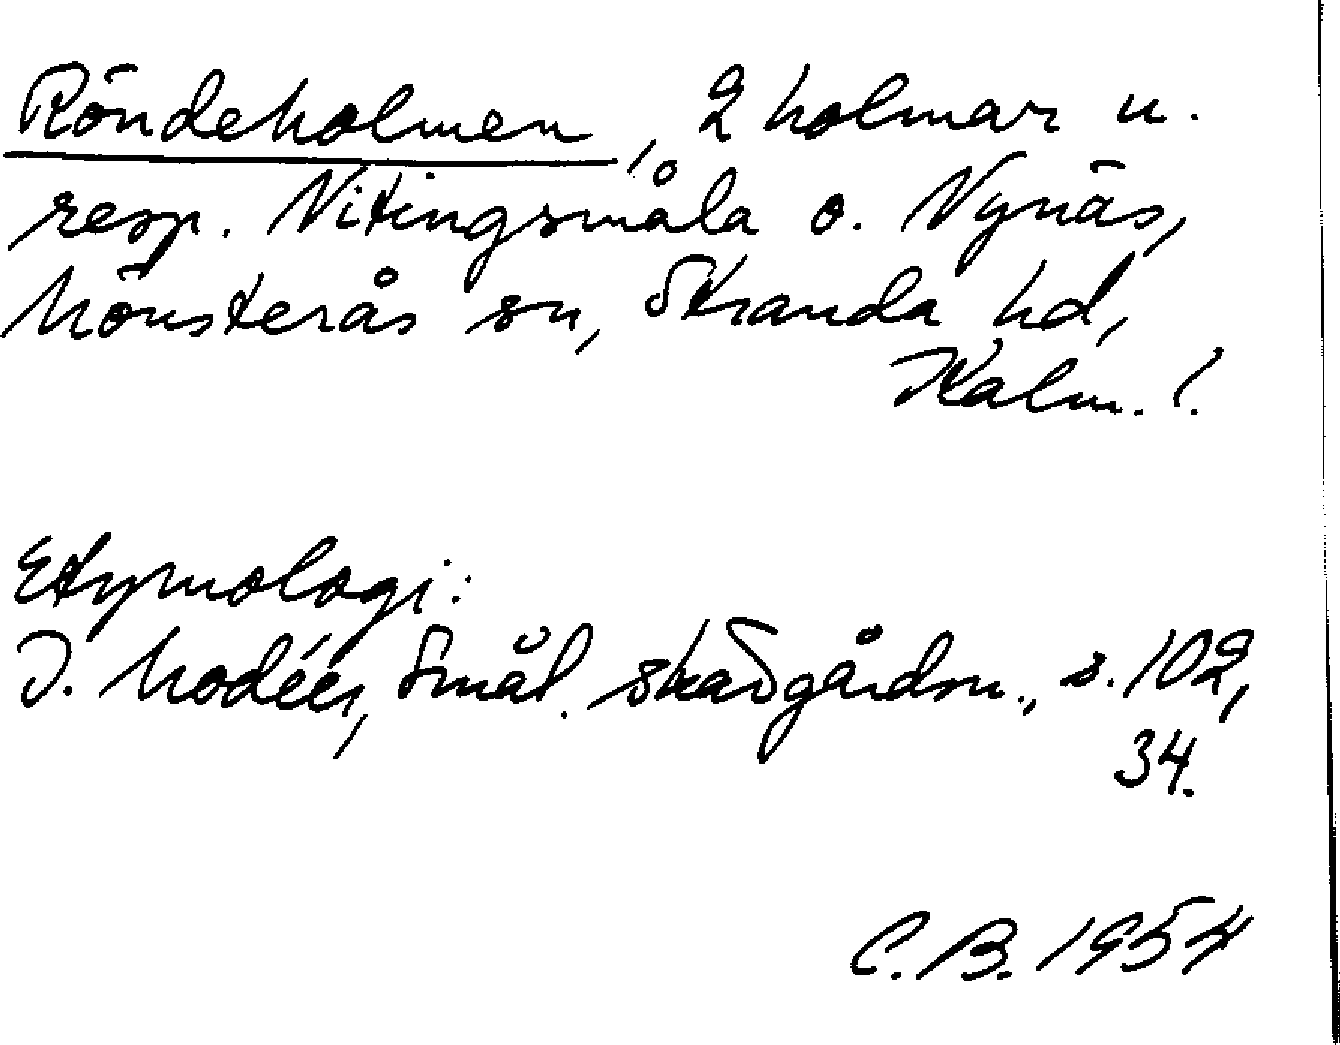 Röndeholmen, 2 holmar u.
resp. Vitingsmåla o. Nynäs,
Mönsterås sn, Stranda hd,
Kalm. l.
Etymologi:
I. Modéer, Smål. skärgårdsn., s. 102,
34.
C. B. 1954